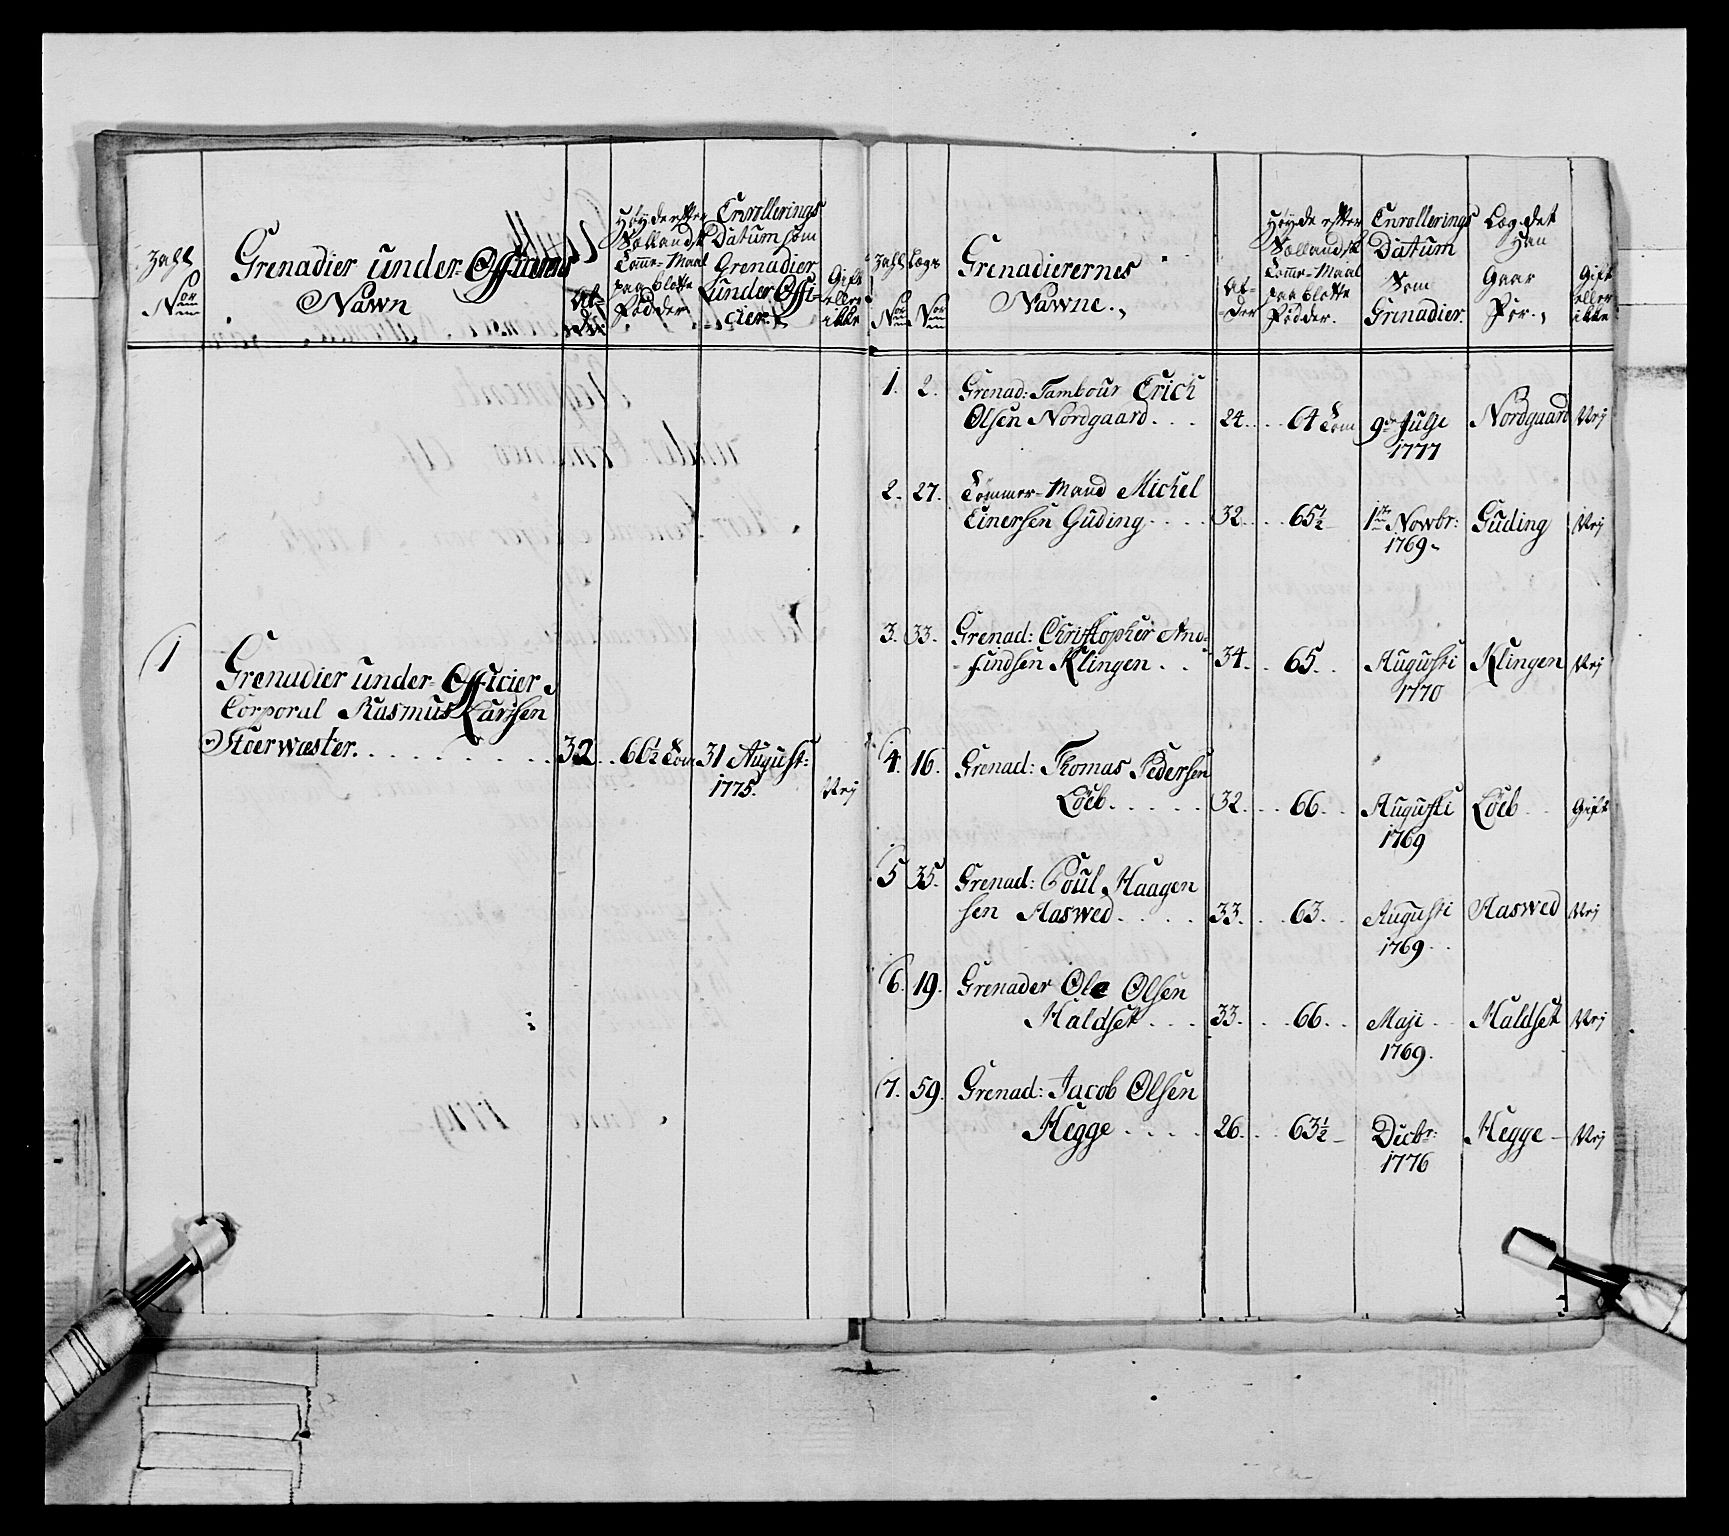 Zahl
Grenadier under-Officerens
Nawn
Al-
der
Høyde efter
Sællandsk
Tomme-Maal
paa blotte
Fødder
Enrollerings
Datum som
Grenadier
under Offi-
cier.
Gift
eller
ikke
1
Grenadier under-Officier
Corporal Rasmus Larssen
Stoerwæster.
32
66½ Tom
31 August:
1775.
Urj
Zahl Lægs
Grenadierernes
Nawne.
Al-
der
Høyde efter
Sællandsk
Tomme-Maal
paa blotte
Fødder.
Enrollerings
Datum
Som
Grenadier.
Læg det
Han
Gaar
For.
Gift
eller
ikke
1. 2. Grenad: Tambour Erich
Olsen Nordgaard. . . 24. . . 64 Tom 9de Julje Nordgaard Urj
1777
2. 27. Tømmer-Mand Michel
Einersen Guding. . . . 32. . . 65½ 1ste Nowbr: Guding Urj
1769.
3. 33. Grenad: Christopher And-
findsen Klingen . . 34. . . 65. . Augusti Klingen Urj
1770
4. 16. Grenad: Thomas Pedersen
Løeb. . . . . 32. . . 66. . . Augusti Løeb Gift
1769
5 35. Grenad: Poul Haagen
sen Aaswed. . . . 33. . . 63. . . Augusti Aaswed Urj
1769. .
6. 19. Grenader Ole Olsen
Haldset. . . 33. . . 66. . . Maji Haldset Urj
1769.
7. 59. Grenad: Jacob Olsen
Hegge . . . . 26. . . 63½ Decbr: Hegge Urj
1776